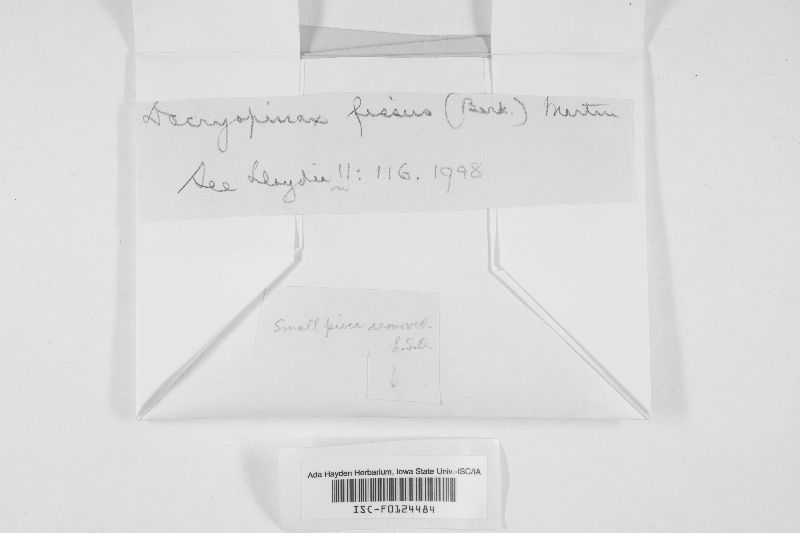 Dacryopinax fissus (Berk.) Martin
See Lloydia 11: 116. 1948
Small piece removed.
L.S.O.
Ada Hayden Herbarium, Iowa State Univ.-ISC/IA
ISC-F0124484